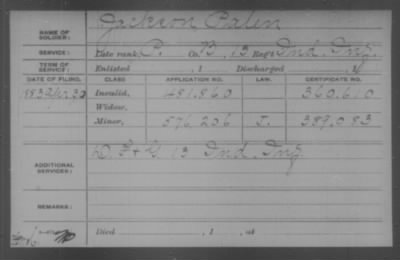 NAME OF SOLDIER: Jackson Palen
SERVICE: Late rank P. Co. B, 13 Reg't Ind. Inf.
TERM OF SERVICE: Enlisted , 1 Discharged , 1
DATE OF FILING. CLASS. APPLICATION NO. LAW. CERTIFICATE NO.
1883 Invalid, 481,860 360,610
Widow,
Minor, 576,206 J. 389,083
ADDITIONAL SERVICES: D. & G. 13 Ind. Inf.
REMARKS:
Died , 1 , at